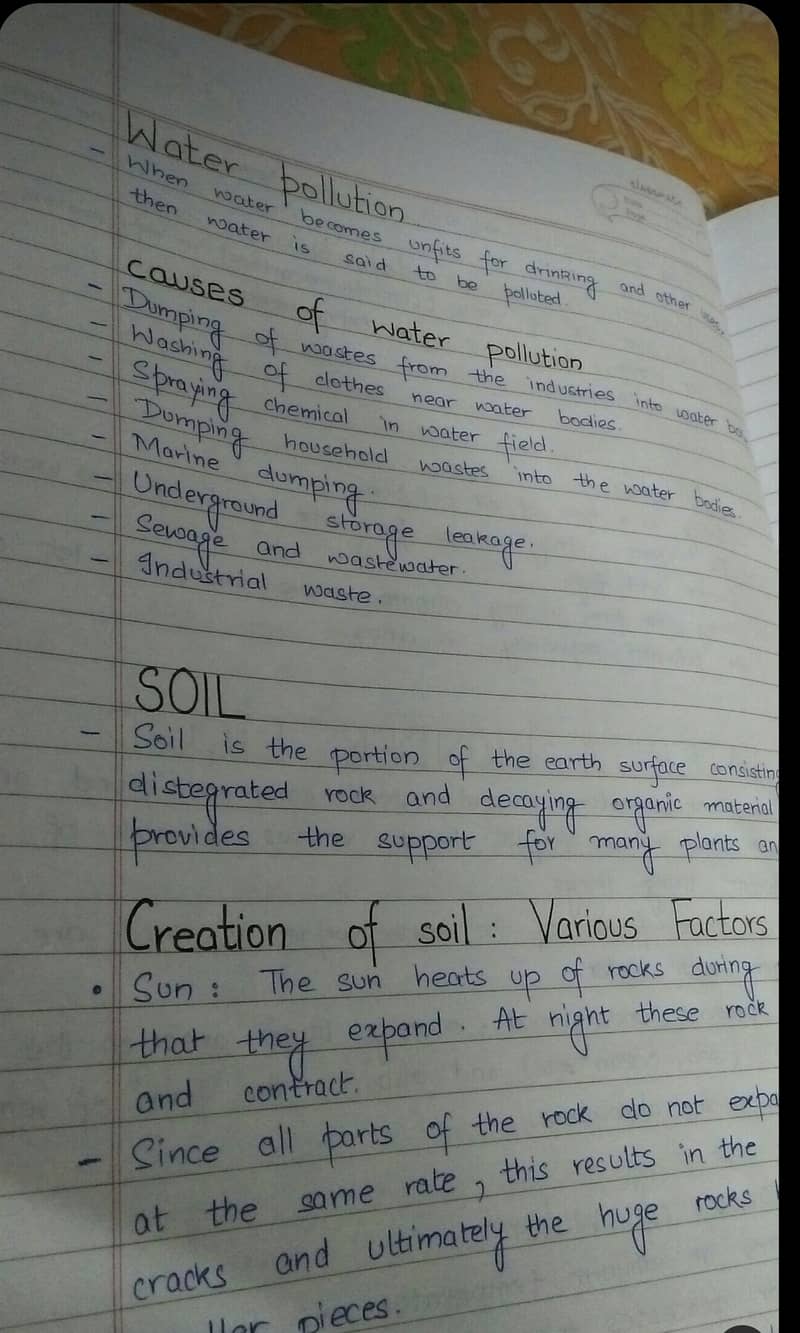 CLASSMATE
Water pollution
- When water becomes unfits for drinking and other uses,
then water is said to be polluted.
causes of water pollution
- Dumping of wastes from the industries into water
- Washing of clothes near water bodies.
- Spraying chemical in water field.
- Dumping household wastes into the water bodies.
- Marine dumping.
- Underground storage leakage.
- Sewage and wastewater.
- Industrial waste.
SOIL
- Soil is the portion of the earth surface consisting
distegrated rock and decaying organic material
provides the support for many plants an
Creation of soil : Various Factors
• Sun : The sun heats up of rocks during
that they expand. At night these rock
and contract.
- Since all parts of the rock do not expa
at the same rate, this results in the
cracks and ultimately the huge rocks
pieces.